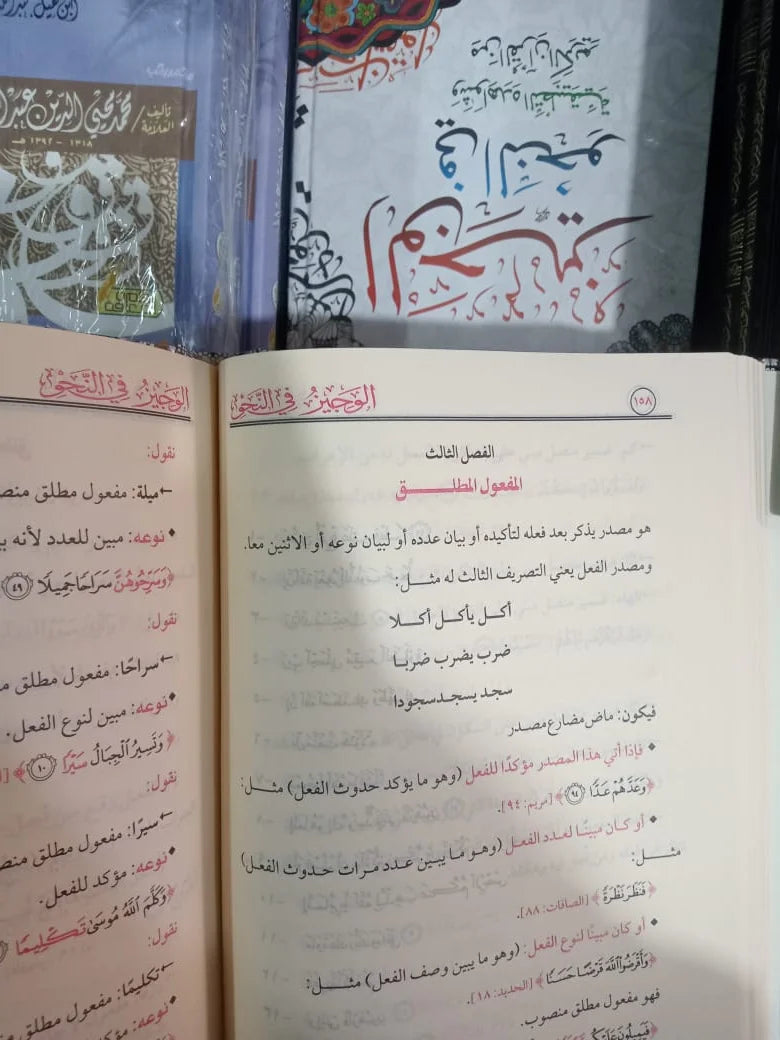 ابن عقيل
تأليف
العلامة/ محمد محيي الدين عبد
١٣١٨ - ١٣٩٢ هـ
في النحو
وشواهده التطبيقية
من القرآن الكريم
١٥٨
الوجيز في النحو
الفصل الثالث
المفعول المطلـــــق
هو مصدر يذكر بعد فعله لتأكيده أو بيان عدده أو لبيان نوعه أو الاثنين معا.
ومصدر الفعل يعني التصريف الثالث له مثـــل:
أكـل يأكـل أكـلا
ضرب يضرب ضربـا
سجد يسجد سجودا
فيكون: ماض مضارع مصدر
◆ فإذا أتي هذا المصدر مؤكدًا للفعل (وهو ما يؤكد حدوث الفعل) مثـل:
﴿وَعَدَّهُمْ عَدًّا ٩٤﴾ [مريم: ٩٤].
◆ أو كان مبينًا لعدد الفعل (وهو ما يبين عدد مرات حدوث الفعل)
مثـــل:
﴿فَنَظَرَ نَظْرَةً﴾ [الصافات: ٨٨].
◆ أو كان مبينًا لنوع الفعل: (وهو ما يبين وصف الفعل) مثـــل:
﴿وَأَقْرَضُوا اللَّهَ قَرْضًا حَسَنًا﴾ [الحديد: ١٨].
فهو مفعول مطلق منصوب.
الوجيز في النحو
نقول:
←ميلة: مفعول مطلق منصو
◆ نوعه: مبين للعدد لأنه
﴿وَسَرِّحُوهُنَّ سَرَاحًا جَمِيلًا ٤٩
نقول:
←سراحًا: مفعول مطلق
◆نوعه: مبين لنوع الفعل.
﴿وَتَسِيرُ الْجِبَالُ سَيْرًا ١٠﴾
نقول:
←سيرًا: مفعول مطلق
◆نوعه: مؤكد للفعل.
﴿وَكَلَّمَ اللَّهُ مُوسَىٰ تَكْلِيمًا
نقول:
←تكليمًا: مفعول مطلق
◆نوعه: